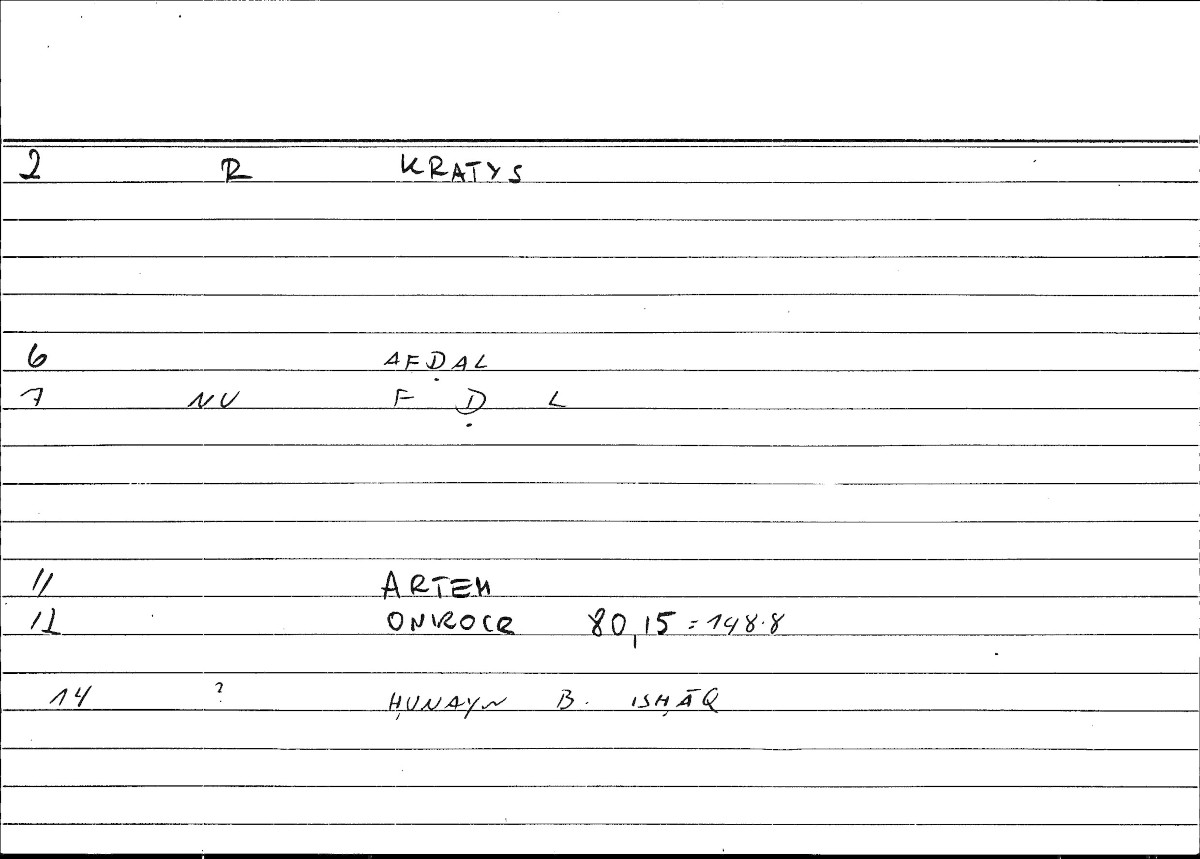 2 R KRATYS
6 AFḌAL
7 NV F Ḍ L
11 ARTEM
12 ONIROCR 80,15 = 148.8
14 ? ḤUNAYN B. ISḤĀQ